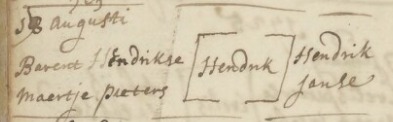 18 Augusti
Barent Hendrikse
Maertje pieters
Hendrik
Hendrik
Janse